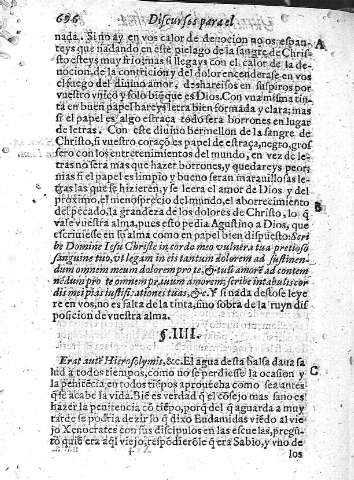 696 Discursos para el
nada. Si no ay en vos calor de deuocion no os espan-
teys que nadando en este pielago de la sangre de Chris-
to esteys muy frio: mas si llegays con el calor de la de-
uocion, de la contricion y del dolor encenderase en vos
el fuego del diuino amor, deshareisos en suspiros por
vuestro vnico y solo bië que es Dios. Con vna misma tin-
ta en buen papel hareys letra bien formada y clara; mas
si el papel es algo estraça todo sera borrones en lugar
de letras. Con este diuino bermellon de la sangre de
Christo, si vuestro coraçõ es papel de estraça, negro, gros
sero con los entretenimientos del mundo, en vez de le-
tras no sera mas que hazer borrones, y quedareys peor:
mas si el papel es limpio y bueno seran marauillosas le-
tras las que se hizieren, y se leera el amor de Dios y del
proximo, el menosprecio del mundo, el aborrecimiento
del pecado, la grandeza de los dolores de Christo, lo q̃
vale vuestra alma, pues esto pedia Agustino a Dios, que
escriuiesse en su alma como en papel bien dispuesto: Scri
be Domine Iesu Christe in cordo meo vulnera tua pretioso
sanguine tuo, vt legam in eis tantum dolorem ad sustinen-
dum omnem meum dolorem pro te, & tuũ amorẽ ad contem
nẽdum pro te omnem prauum amorem, scribe in tabulis cor-
dis mei pias iustificationes tuas, &c. Y si nada destose leye
re en vos, no es falta de la tinta, sino sobra de la ruyn dis
posicion de vuestra alma.
§. IIII.
Erat autẽ Hierosolymis, &c. El agua desta balsa daua sa
lud a todos tiempos, como no se perdiesse la ocasion y
la penitẽcia en todos tiẽpos aprouecha como sea antes
q̃ se acabe la vida. Biẽ es verdad q̃ el cõsejo mas sano es
hazer la penitencia cõ tiẽpo, porq̃ del q̃ aguarda a muy
tarde se podria dezir lo q̃ dixo Eudamidas viẽdo al vie
jo Xenocrates con sus discipulos en las escuelas, pregũ-
tò quiẽ era aq̃l viejo, respõdierõle q̃ era Sabio, y vno de
los
A
B
C